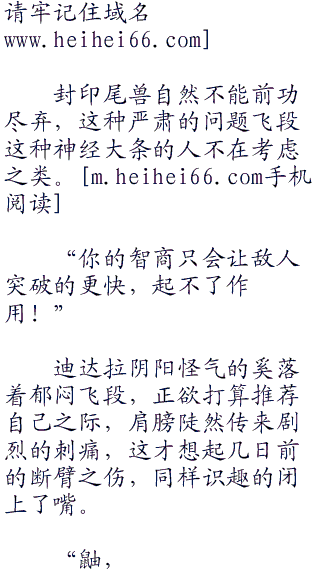 请牢记住域名
www.heihei66.com]
封印尾兽自然不能前功
尽弃，这种严肃的问题飞段
这种神经大条的人不在考虑
之类。[m.heihei66.com手机
阅读]
“你的智商只会让敌人
突破的更快，起不了作
用！”
迪达拉阴阳怪气的奚落
着郁闷飞段，正欲打算推荐
自己之际，肩膀陡然传来剧
烈的刺痛，这才想起几日前
的断臂之伤，同样识趣的闭
上了嘴。
“鼬，